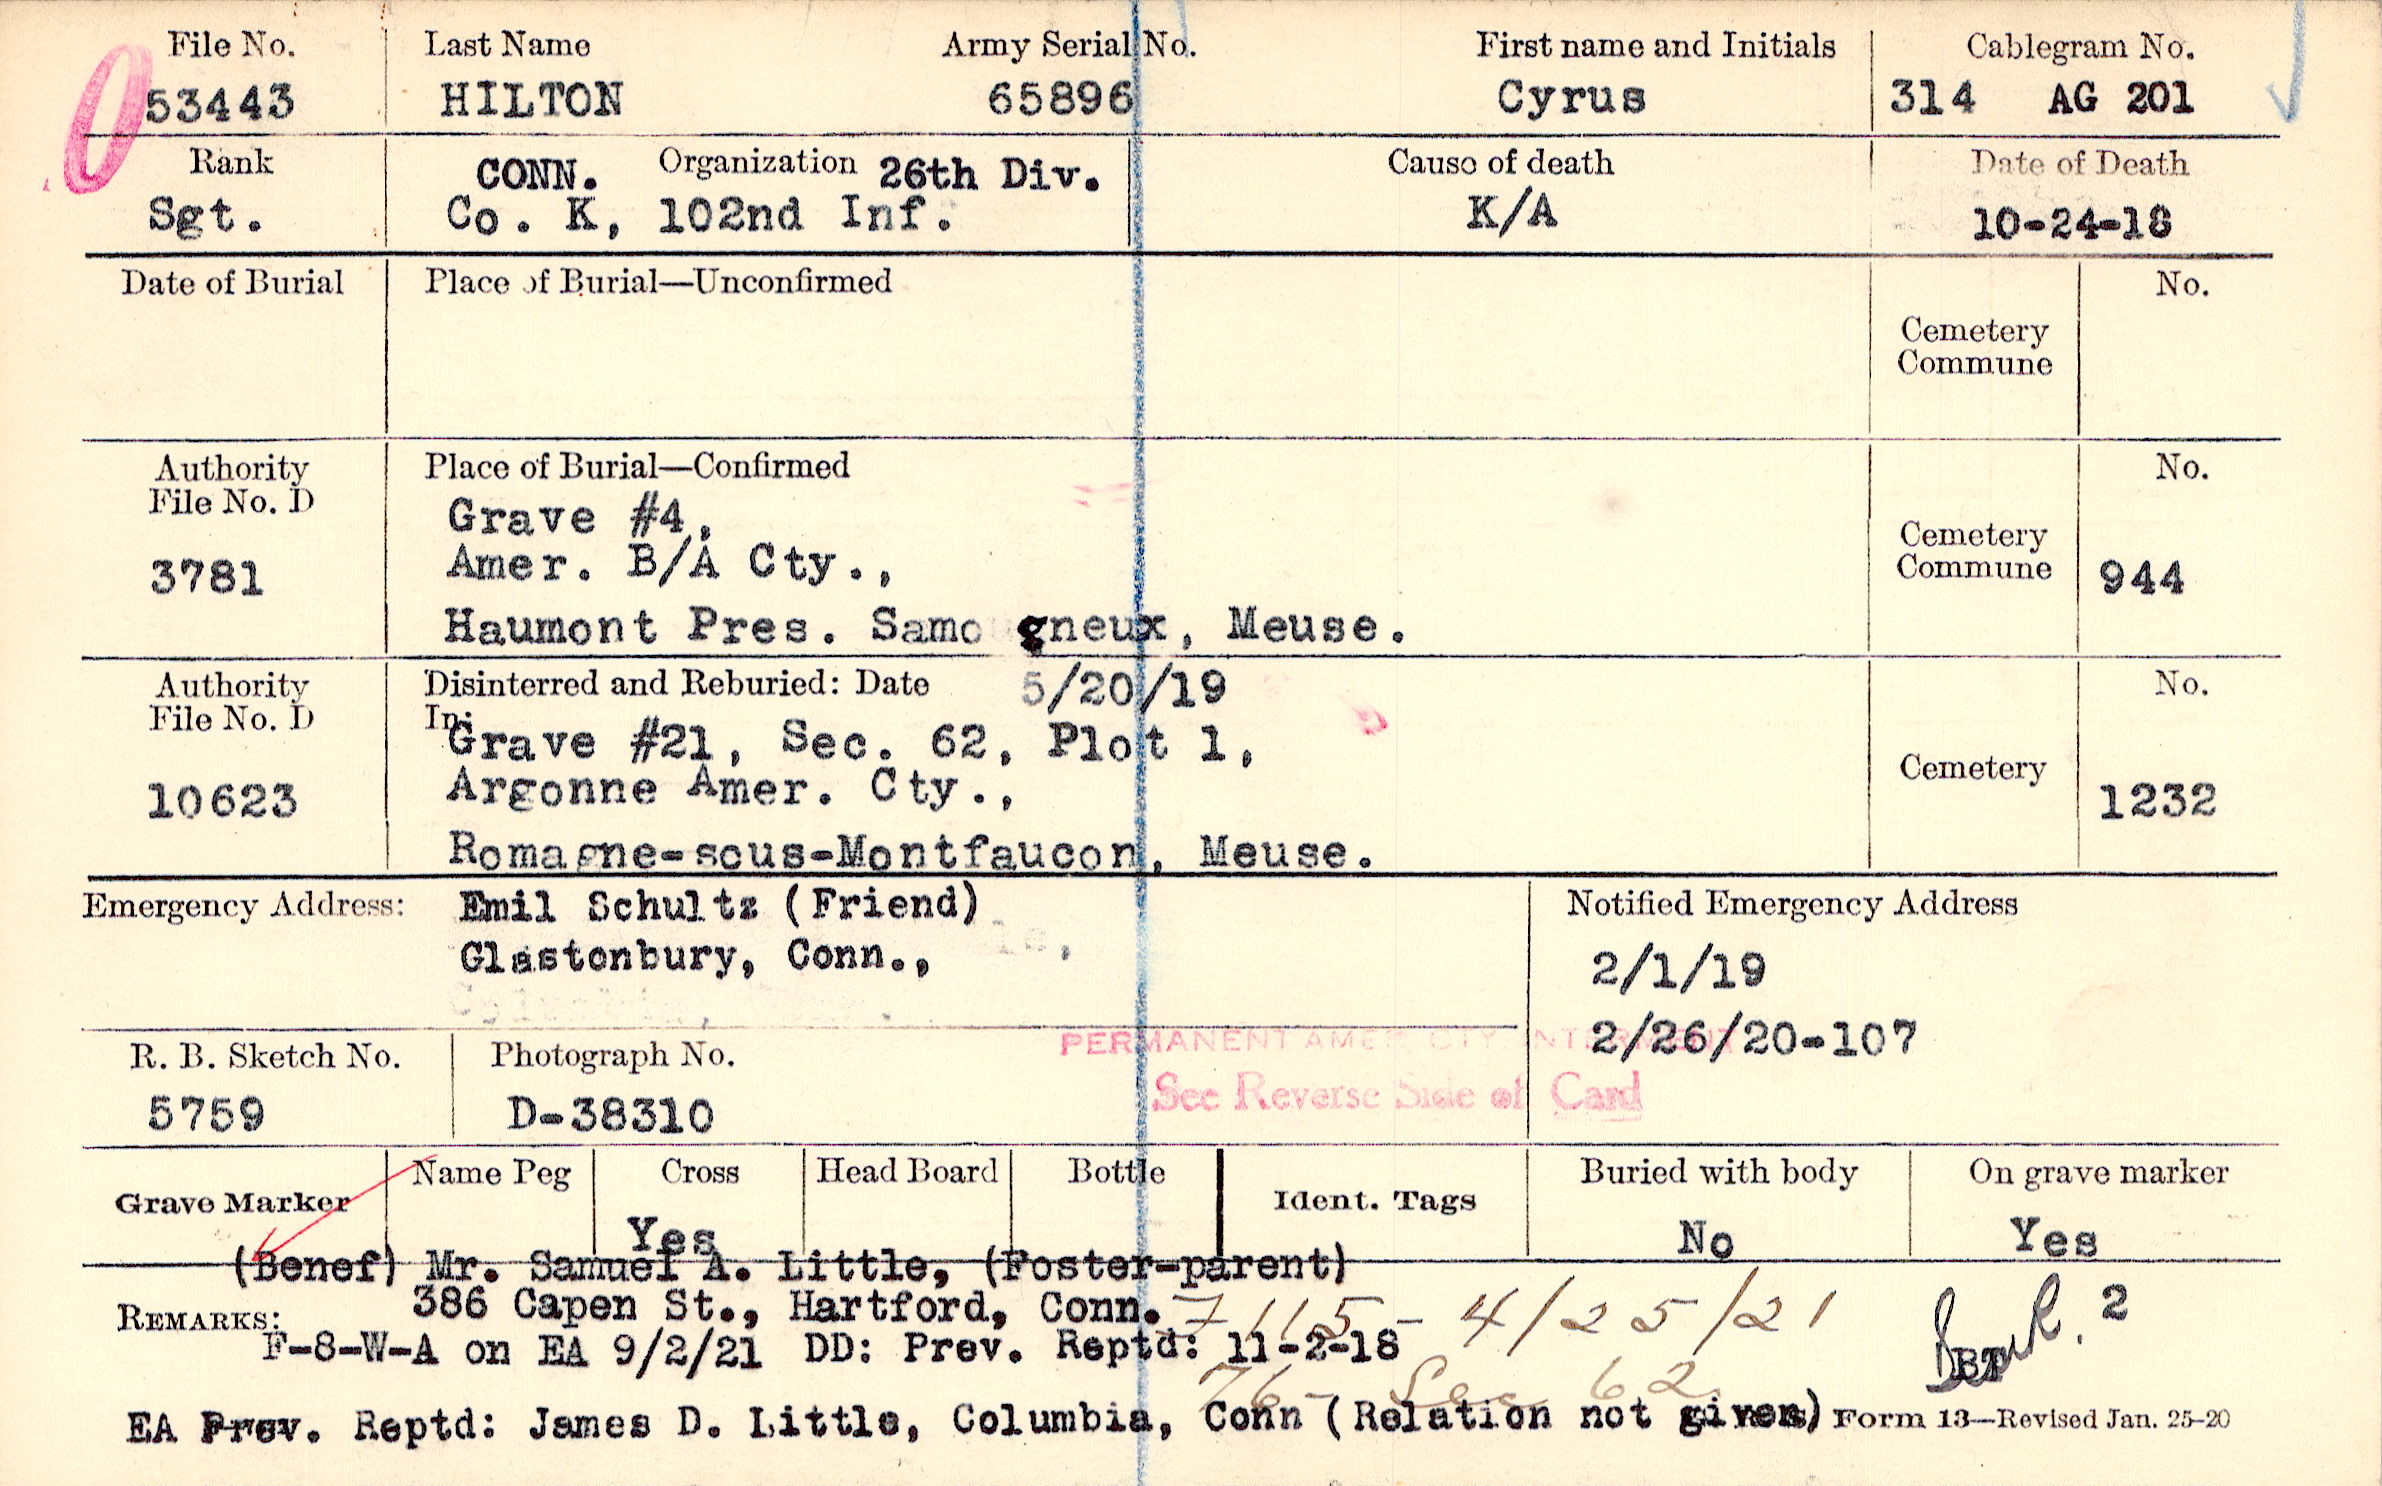 File No. Last Name Army Serial No. First name and Initials Cablegram No.
53443 HILTON 65896 Cyrus 314 AG 201
Rank CONN. Organization 26th Div. Cause of death Date of Death
Sgt. Co. K, 102nd Inf. K/A 10-24-18
Date of Burial Place of Burial—Unconfirmed No.
Cemetery
Commune
Authority Place of Burial—Confirmed No.
File No. D
Grave #4,
Cemetery
3781 Amer. B/A Cty., Commune 944
Haumont Pres. Samo gneux, Meuse.
Authority Disinterred and Reburied: Date 5/20/19 No.
File No. D In:
Grave #21, Sec. 62, Plot 1,
Cemetery
10623 Argonne Amer. Cty., 1232
Romagne-sous-Montfaucon, Meuse.
Emergency Address: Emil Schultz (Friend) Notified Emergency Address
Glastonbury, Conn., 2/1/19
2/26/20-107
PERMANENT AMER CTY INTERMENT
R. B. Sketch No. Photograph No.
See Reverse Side of Card
5759 D-38310
Grave Marker Name Peg Cross Head Board Bottle Ident. Tags Buried with body On grave marker
Yes No Yes
(Benef) Mr. Samuel A. Little, (Foster-parent)
386 Capen St., Hartford, Conn. 7115 - 4/25/21 2
REMARKS:
F-8-W-A on EA 9/2/21 DD: Prev. Reptd: 11-2-18
76- Sec 62
EA Prev. Reptd: James D. Little, Columbia, Conn (Relation not given) Form 13—Revised Jan. 25-20